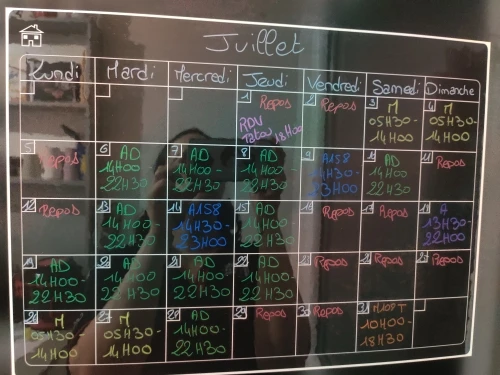 Juillet
Lundi Mardi Mercredi Jeudi Vendredi Samedi Dimanche
1 Repos
RDV Tatou 18H00
2 Repos
3 M
05H30-
14H00
4 M
05H30-
14H00
5 Repos
6 AD
14H00-
22H30
7 AD
14H00-
22H30
8 AD
14H00-
22H30
9 A158
14H30-
23H00
10 AD
14H00-
22H30
11 Repos
12 Repos
13 AD
14H00-
22H30
14 A158
14H30-
23H00
15 AD
14H00-
22H30
16 Repos
17 Repos
18 A
13H30-
22H00
19 AD
14H00-
22H30
20 AD
14H00-
22H30
21 AD
14H00-
22H30
22 AD
14H00-
22H30
23 Repos
24 Repos
25 Repos
26 M
05H30-
14H00
27 M
05H30-
14H00
28 AD
14H00-
22H30
29 Repos
30 Repos
31
10H00-
18H30